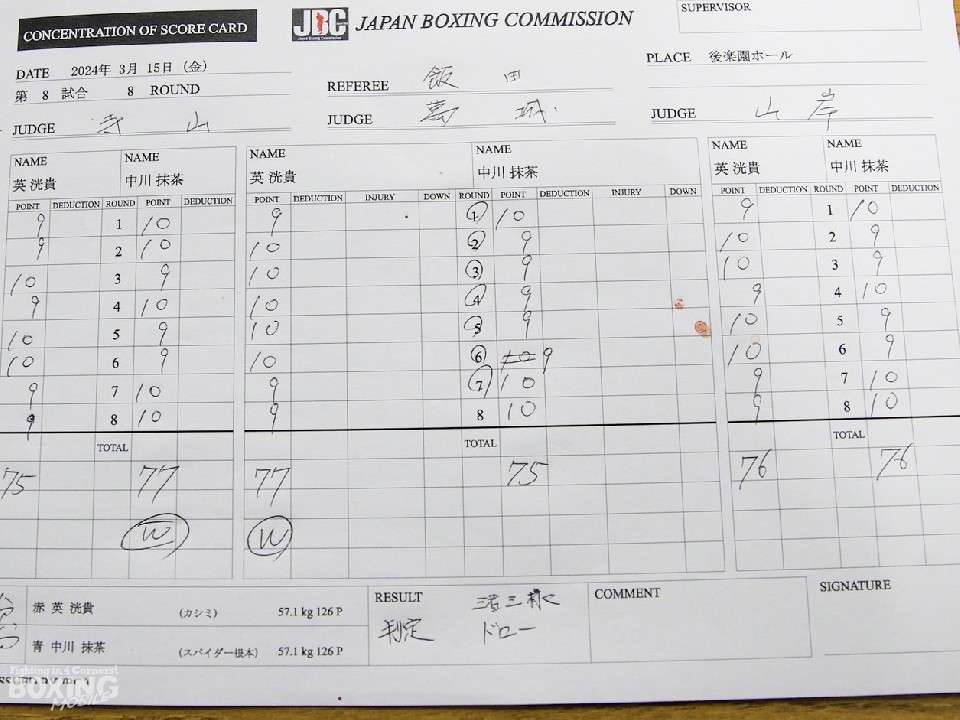 CONCENTRATION OF SCORE CARD
JBC JAPAN BOXING COMMISSION
SUPERVISOR
DATE 2024年 3月 15日（金）
REFEREE 飯田
PLACE 後楽園ホール
第 8 試合 8 ROUND
JUDGE 寺山
JUDGE 葛城
JUDGE 山岸
NAME NAME NAME NAME NAME NAME
英 洸貴 中川 抹茶 英 洸貴 中川 抹茶 英 洸貴 中川 抹茶
POINT DEDUCTION ROUND POINT DEDUCTION POINT DEDUCTION INJURY DOWN ROUND POINT DEDUCTION INJURY DOWN POINT DEDUCTION ROUND POINT DEDUCTION
9 1 10 9 1 10 9 1 10
9 2 10 10 2 9 10 2 9
10 3 9 10 3 9 10 3 9
9 4 10 10 4 9 9 4 10
10 5 9 10 5 9 10 5 9
10 6 9 10 6 10 9 10 6 9
9 7 10 9 7 10 9 7 10
9 8 10 9 8 10 9 8 10
TOTAL TOTAL TOTAL
75 77 77 75 76 76
W W
赤 英 洸貴 (カシミ) 57.1 kg 126 P
青 中川 抹茶 (スパイダー根本) 57.1 kg 126 P
RESULT
判定 ドロー
COMMENT
SIGNATURE
Fighting in 4 Corners!
BOXING
MOBILE